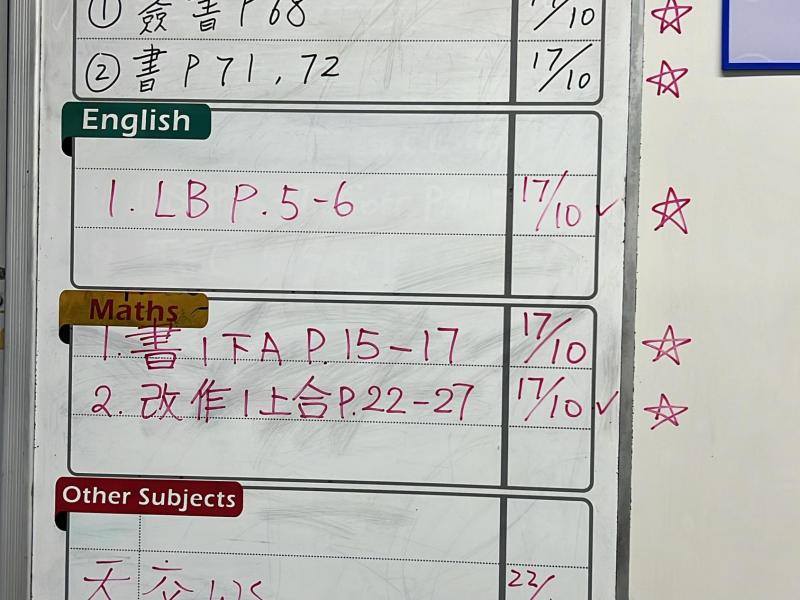 ① 簽書 P 68 17/10
② 書 P 71, 72 17/10
English
1. LB P.5-6 17/10 ✓
Maths
1. 書 1下A P.15-17 17/10
2. 改作1上合P.22-27 17/10 ✓
Other Subjects
天 交 22/